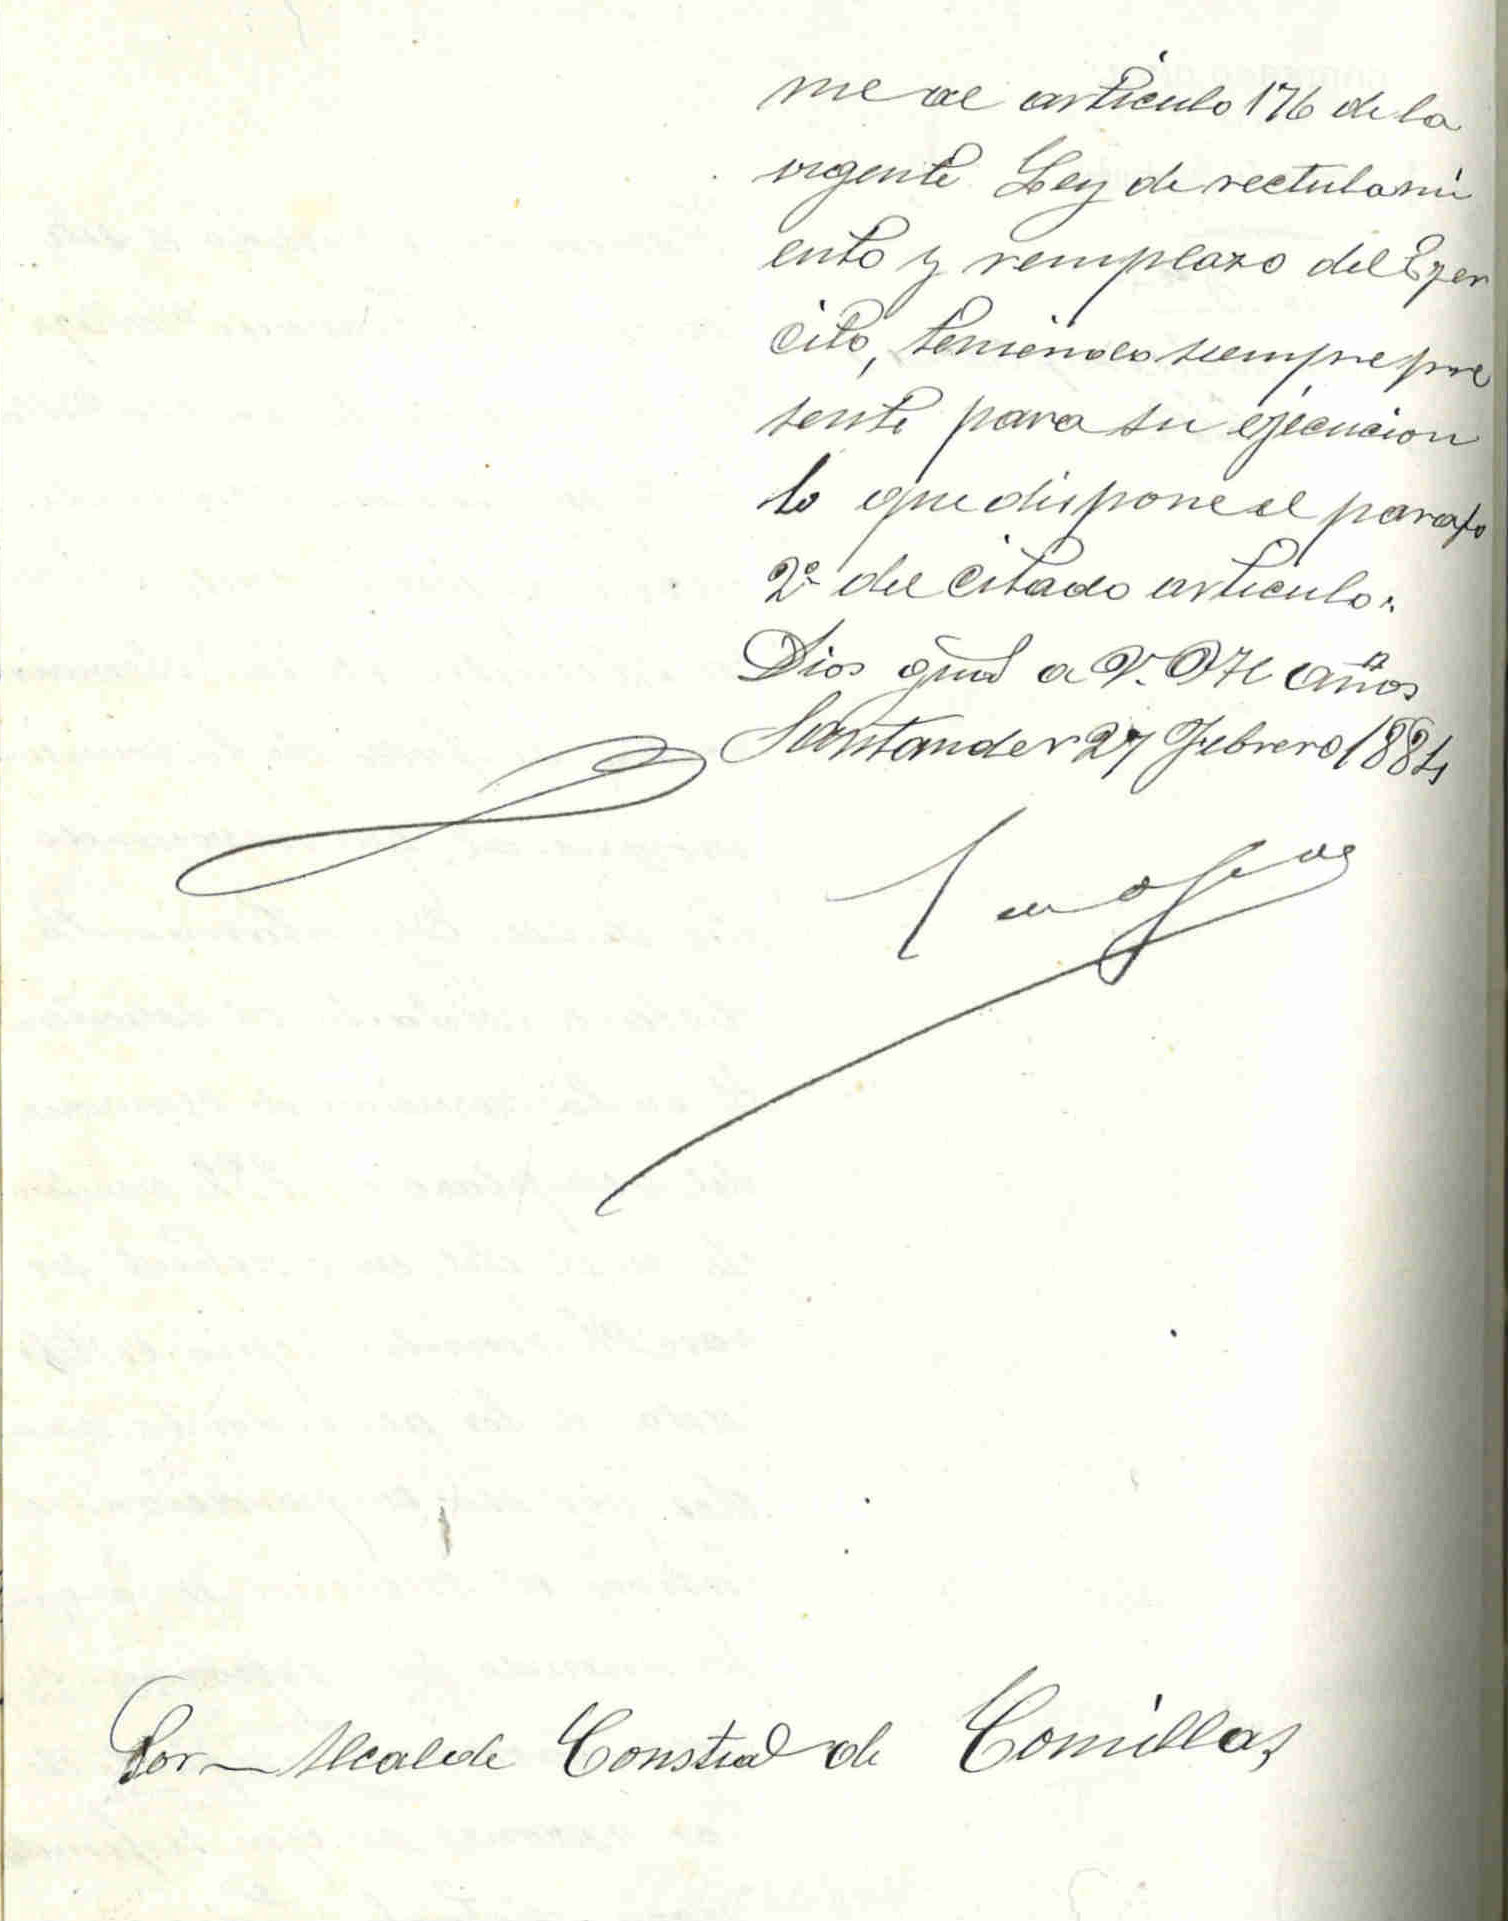 me al articulo 176 de la
vigente Ley de rectulami
ento y remplazo del Ejer
cito, teniendo siempre pre
sente para su ejecucion
lo que dispone el parafo
2º del citado articulo.
Dios gud a V. M años
Santander 27 Febrero 1884
Sor Alcalde Constial de Comillas